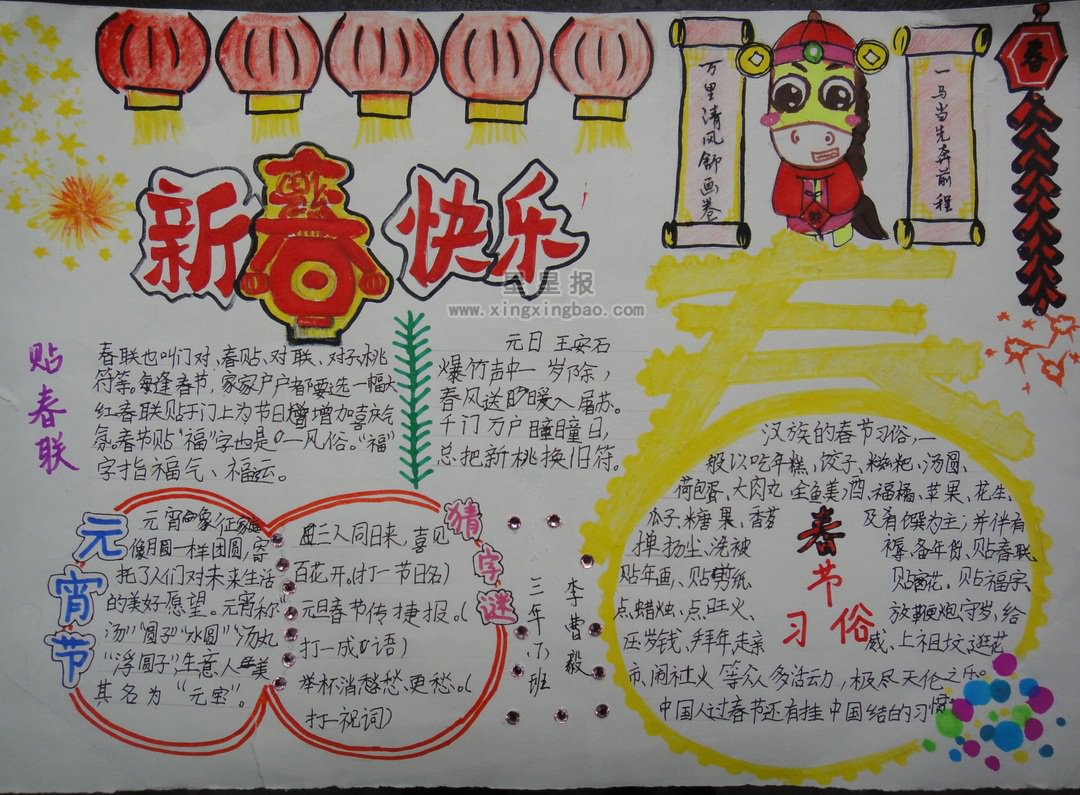 新春快乐
万里清风舒画卷
一马当先奔前程
春
星星报
www.xingxingbao.com
贴春联
春联也叫门对、春贴、对联、对子、桃
符等。每逢春节，家家户户都要选一幅大
红春联贴于门上为节日增增加喜庆气
氛。春节贴“福”字也是一风俗。“福”
字指福气、福运。
元日 王安石
爆竹声中一岁除，
春风送暖入屠苏。
千门万户曈曈日，
总把新桃换旧符。
元宵节
元宵象征
像月圆一样团圆，寄
托了人们对未来生活
的美好愿望。元宵称“
汤”“圆子”“水圆”“汤丸
“浮圆子”，生意人美
其名为“元宝”。
猜字谜
三人同日来，喜见
百花开。(打一节日名)
元旦春节传捷报。(
打一成语)
举杯消愁愁更愁。(
打一祝词)
三年(7)班
李曹毅
春节习俗
汉族的春节习俗，一
般以吃年糕、饺子、糍粑、汤圆、
荷包蛋、大肉丸、全鱼、美酒、福橘、苹果、花生、
瓜子、糖果、香茗及肴馔为主；并伴有
掸扬尘、洗被褥、备年货、贴春联
贴年画、贴剪纸、贴窗花、贴福字、
点蜡烛、点旺火、放鞭炮、守岁、给
压岁钱、拜年、走亲戚、上祖坟、逛花
市、闹社火等众多活动，极尽天伦之乐。
中国人过春节还有挂中国结的习惯